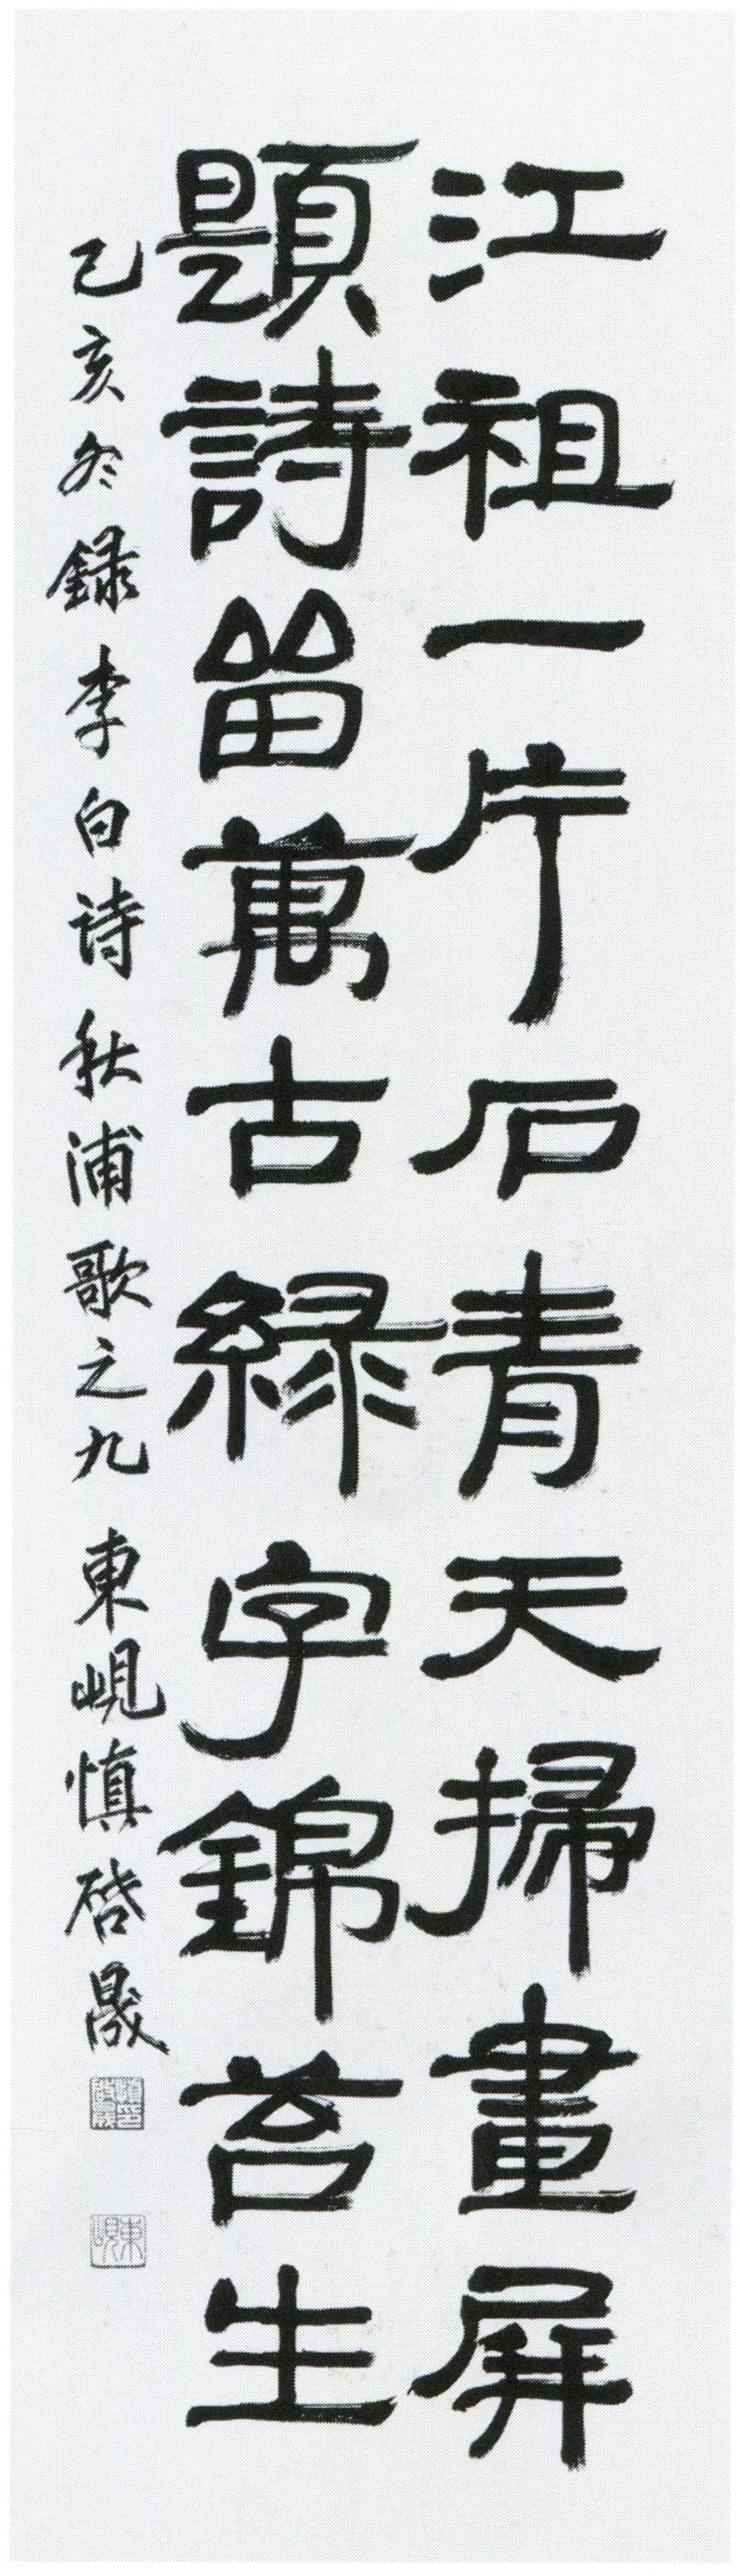 江祖一片石青天掃畫屏
題詩畄萬古綠字錦苔生
己亥冬録李白诗秋浦歌之九 東峴慎啓晟
東峴